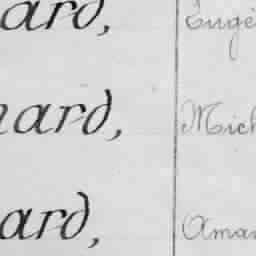 ard, Eugé
ard, Mich
ard, Aman